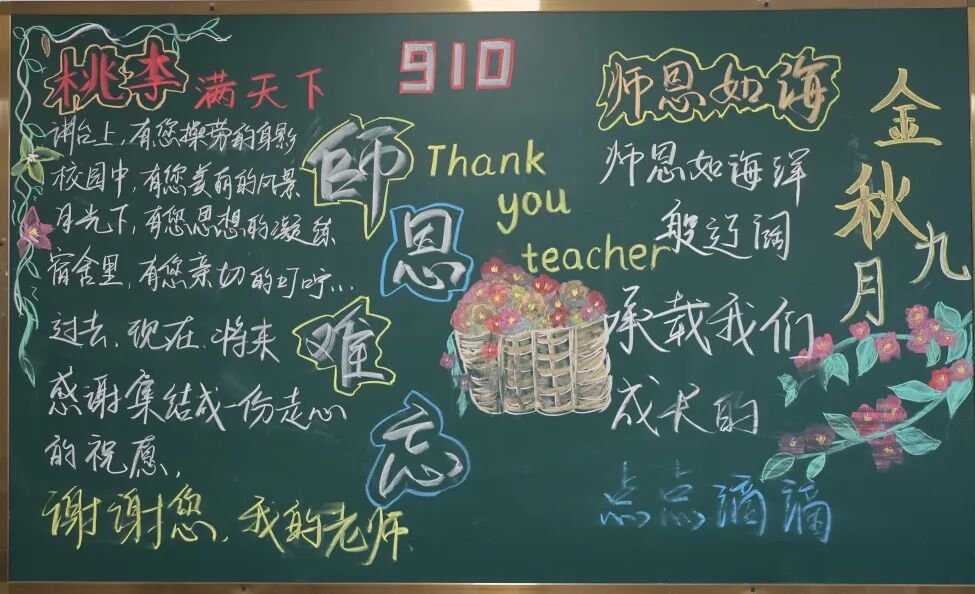 桃李满天下
讲台上,有您操劳的身影
校园中,有您美丽的风景
月光下,有您思想的凝练
宿舍里,有您亲切的叮咛...
过去、现在、将来
感谢集结成一份走心
的祝愿,
谢谢您,我的老师
910
師恩难忘
Thank
you
teacher
师恩如海
师恩如海洋
般辽阔
承载我们
成长的
点点滴滴
金秋九月